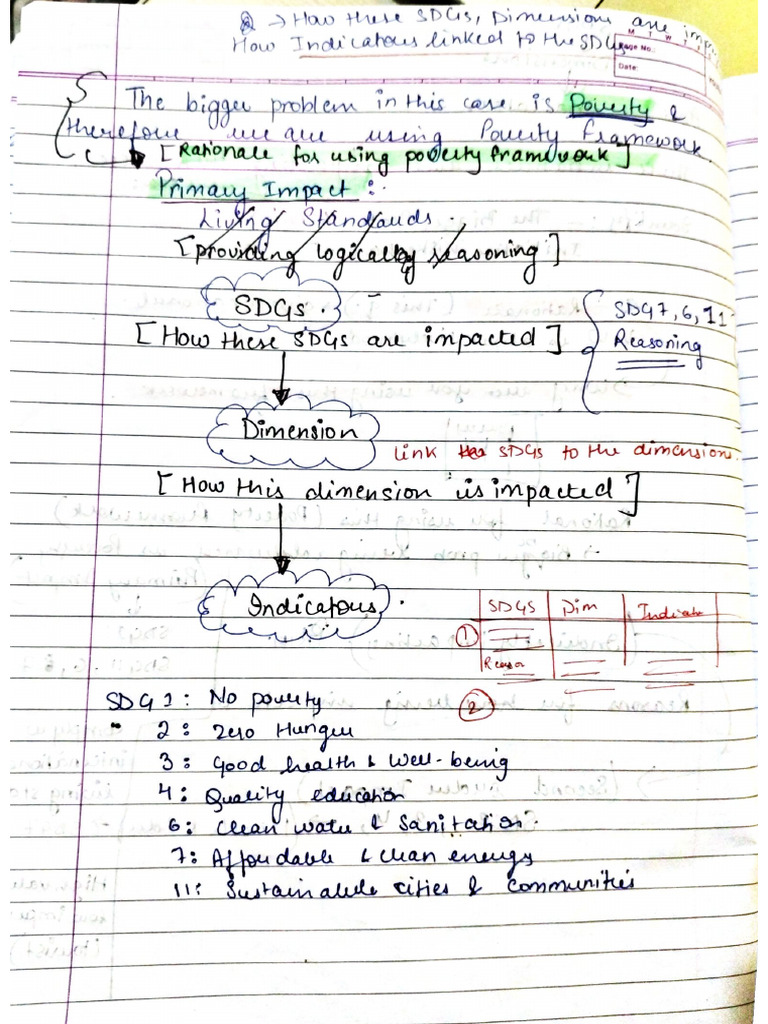 Q → How these SDGs, Dimensions are imp
How Indicators linked to the SDGs
M T W T
Page No.:
Date:
The bigger problem in this case is Poverty &
therefore we are using Poverty framework.
[Rationale for using poverty framework]
Primary Impact :
Living Standards.
[providing logically reasoning]
SDGs.
[How these SDGs are impacted]
SDG 7, 6, 11
Reasoning
Dimension
link SDGs to the dimensions.
[How this dimension is impacted]
Indicators.
SDGS Dim Indicator
1
Reason
2
SDG 1: No poverty
" 2: Zero Hunger
3: Good health & well-being
4: Quality education
6: Clean water & Sanitation.
7: Affordable & clean energy
11: Sustainable cities & communities